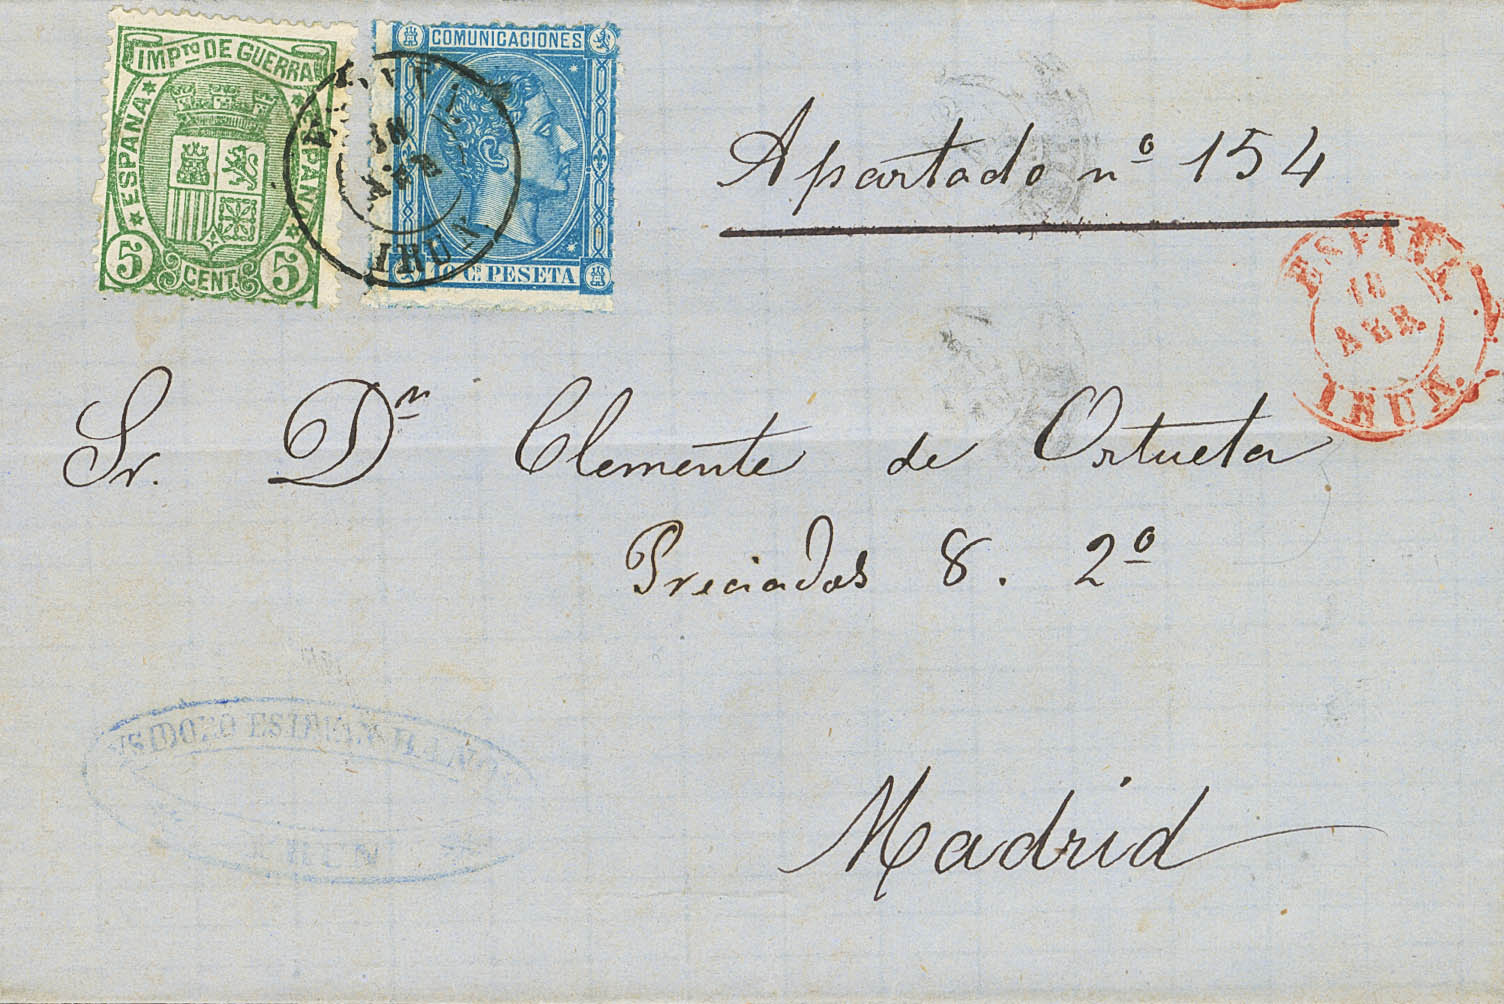 IMPTO DE GUERRA
ESPAÑA
ESPAÑA
5 CENTS 5
COMUNICACIONES
10 CS PESETA
18
ABR
IRUN
Apartado nº 154
ESPAÑA
18
ABR.
IRUN.
Sr. Dn Clemente de Ortueta
Preciados 8. 2º
YSIDORO ESTEBAN HERMANOS
IRUN
Madrid